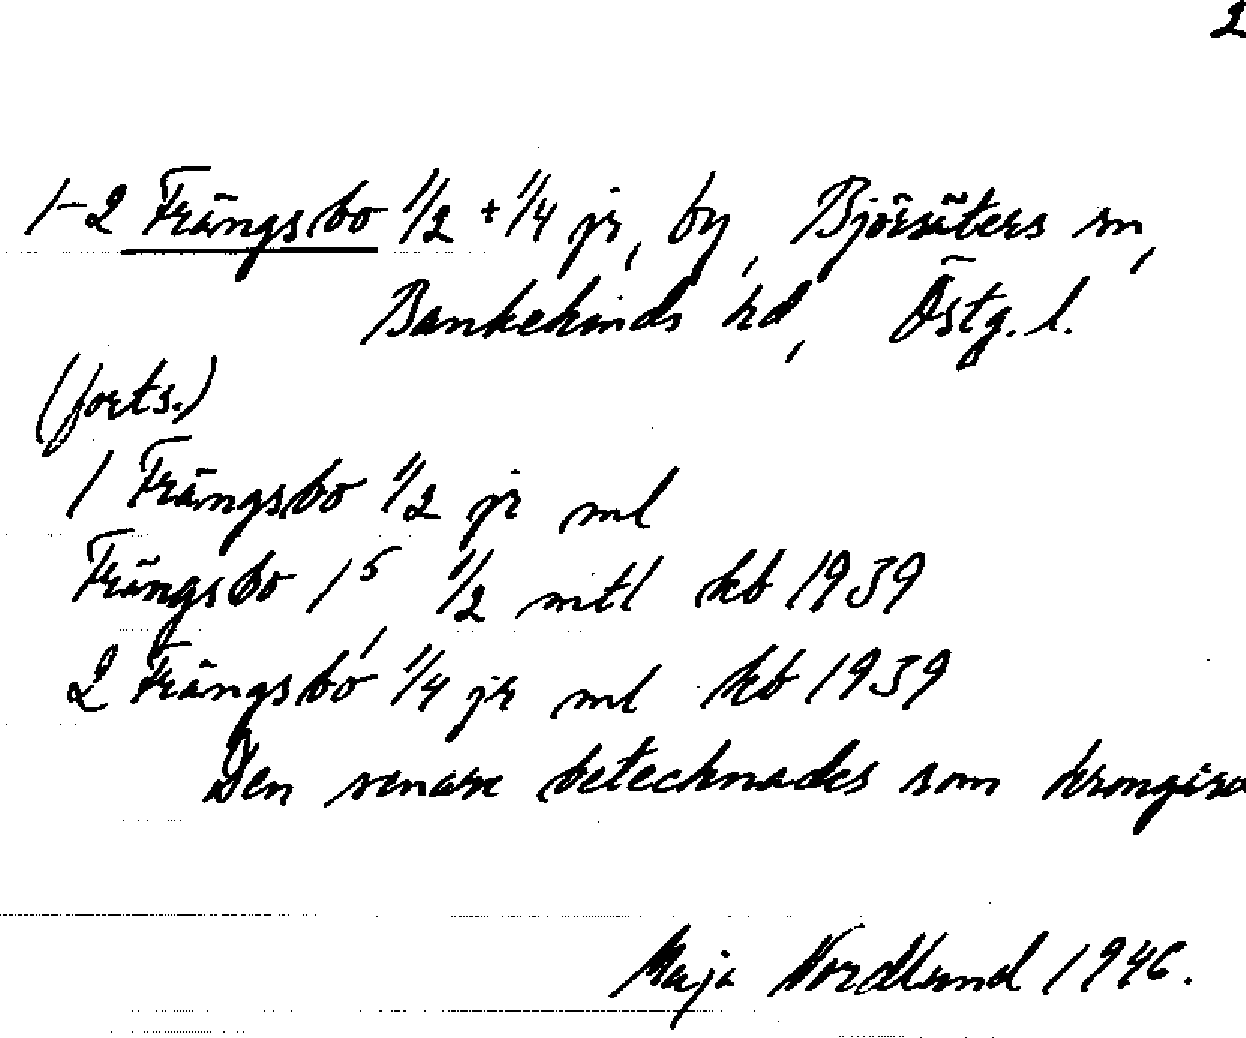 2
1-2 Frängsbo 1/2 + 1/4 jr, by, Björsäters sn,
Bankekinds hd, Östg. l.
(forts.)
1 Frängsbo 1/2 jr ml
Frängsbo 1⁵ 1/2 mtl kb 1939
2 Frängsbo 1/4 jr ml kb 1939
Den senare betecknades som
Maja Nordlund 1946.